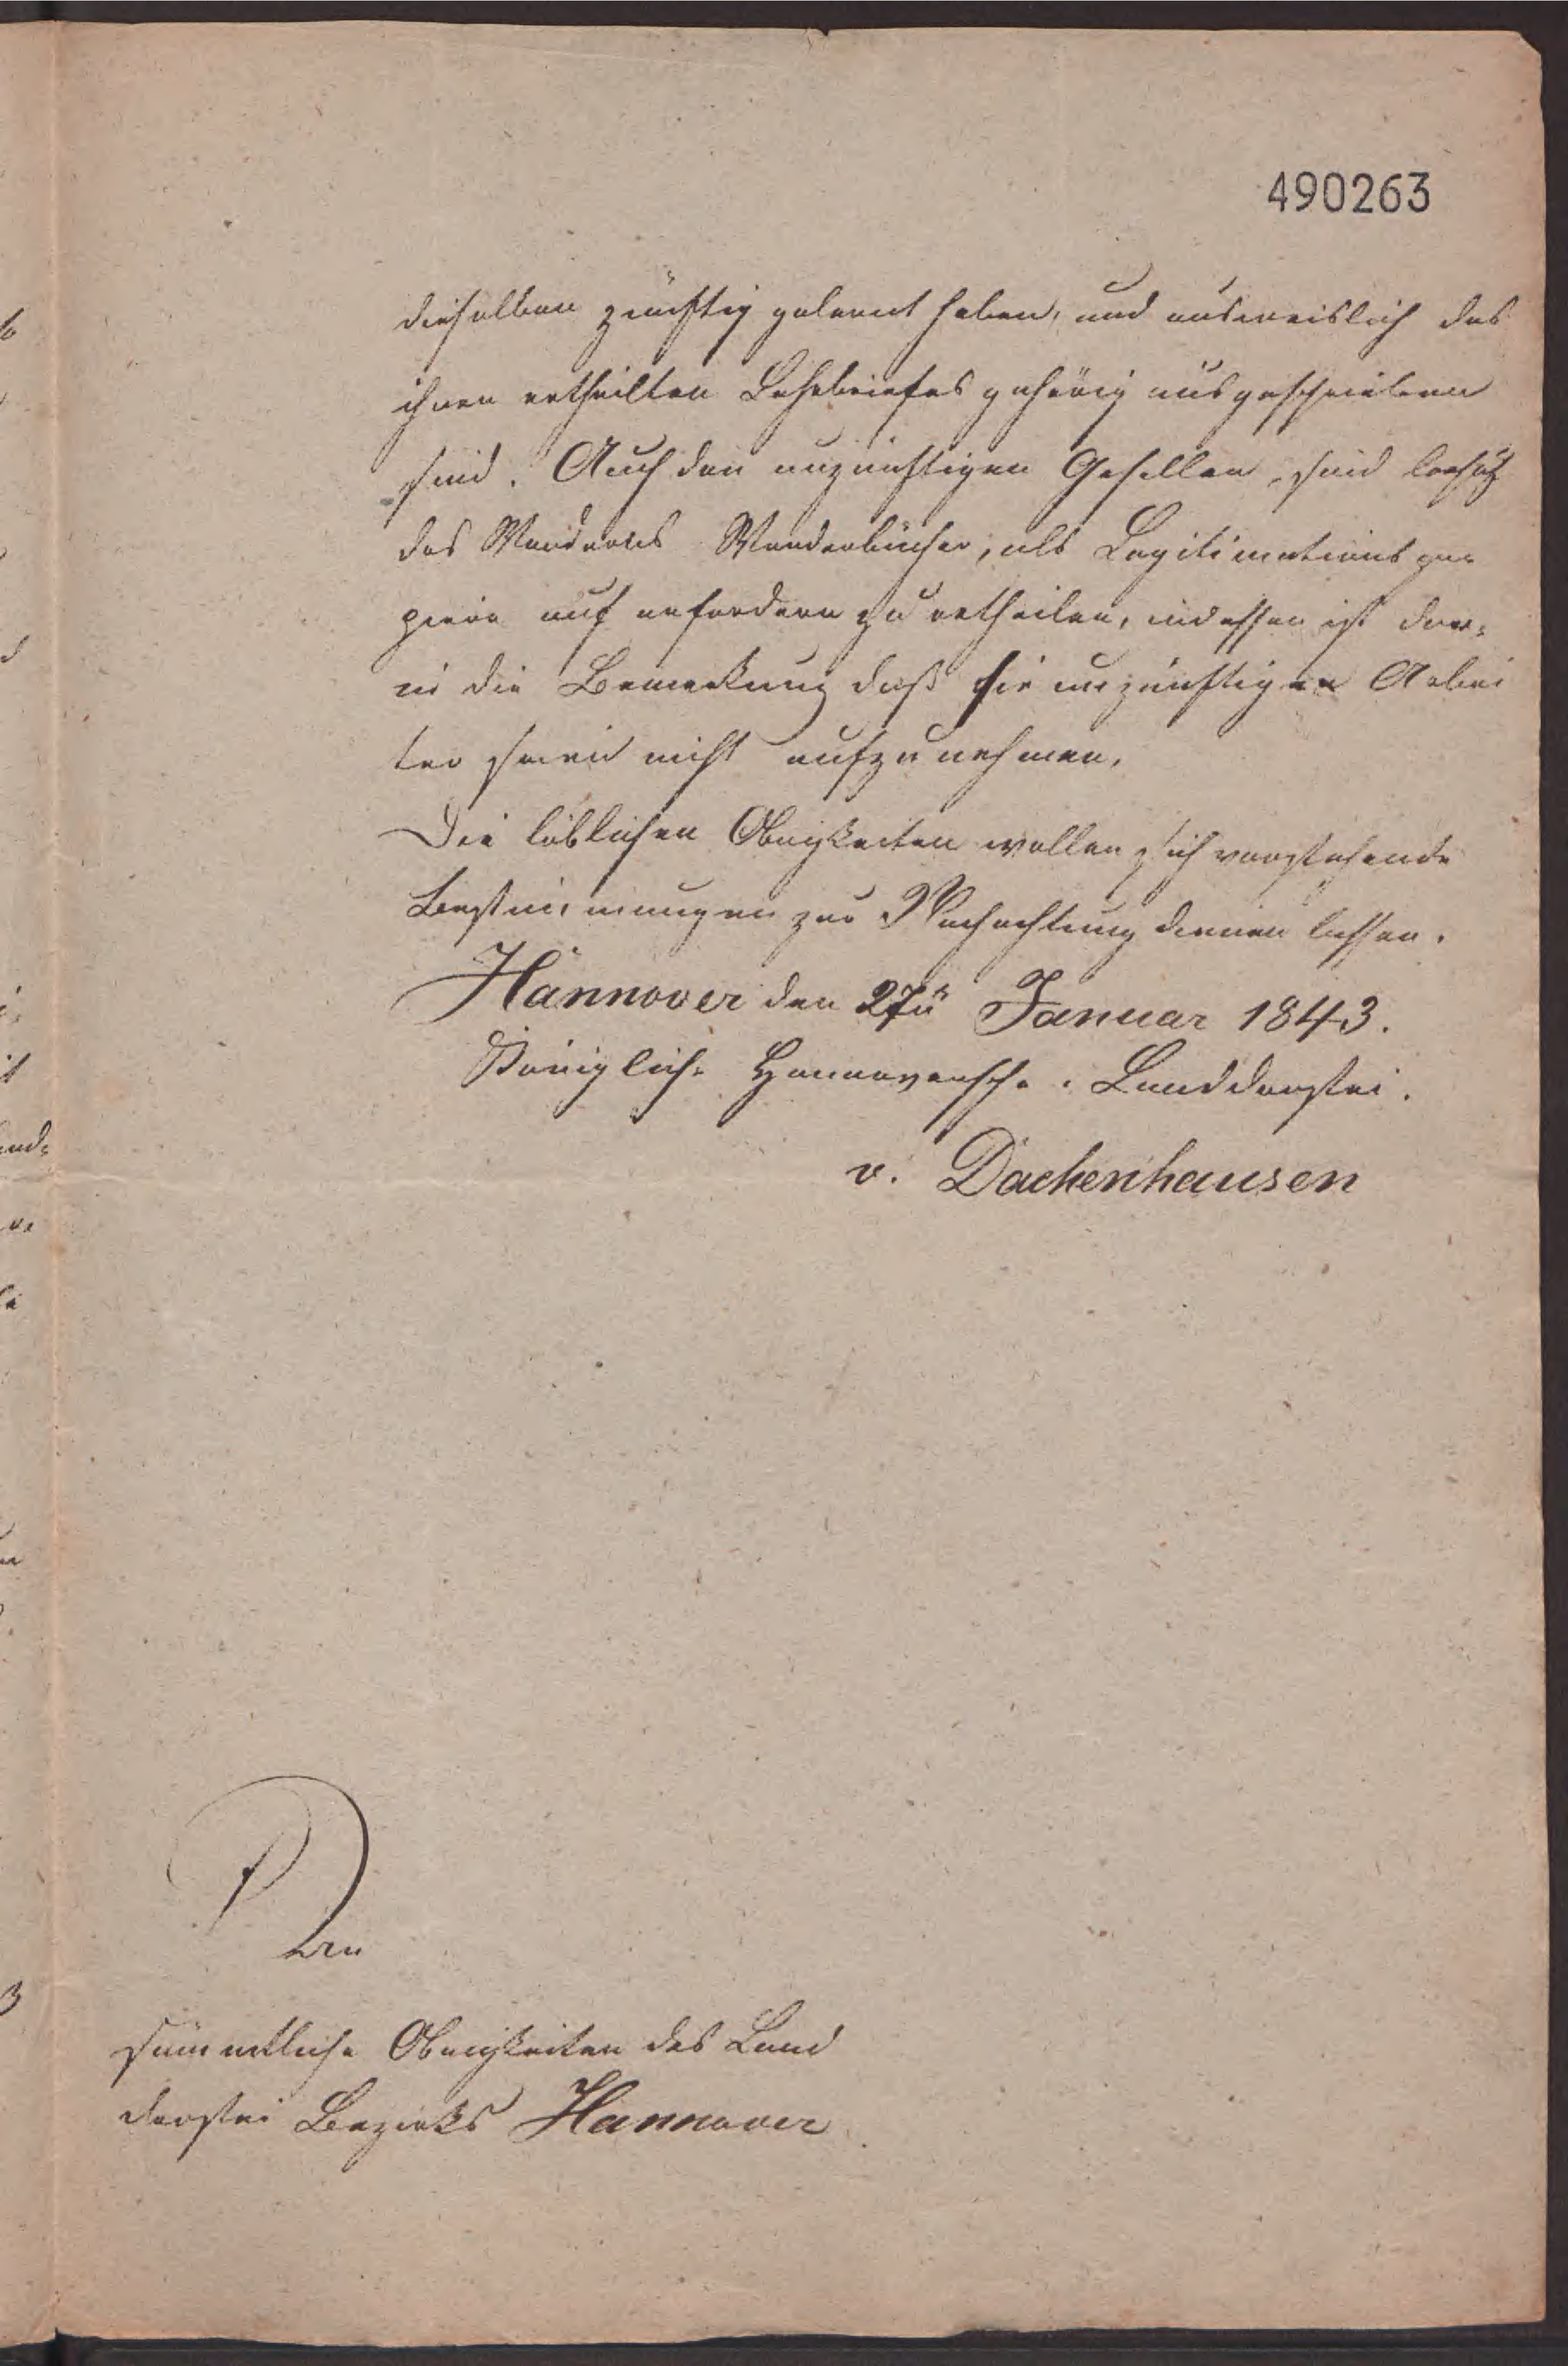 490263
dieselben zünftig gelernt haben, und ausweislich des
ihnen ertheilten Lehrbriefes gehörig ausgeschrieben
sind. Auch den unzünftigen Gesellen, sind behuf
des Wanderns Wanderbücher, als Legitimationspa-
piere auf erfordern zu ertheilen, indessen ist dar-
in die Bemerkung daß sie unzünftigen Arbei
ter seien nicht aufzunehmen.
Die löblichen Obrigkeiten wollen sich vorstehende
Bestimmungen zur Nachachtung dienen lassen.
Hannover den 27n Januar 1843.
Königlich- Hannoversche. Landdrostei.
v. Dachenhausen
Den
sämmtliche Obrigkeiten des Land
drostei Bezirks Hannover